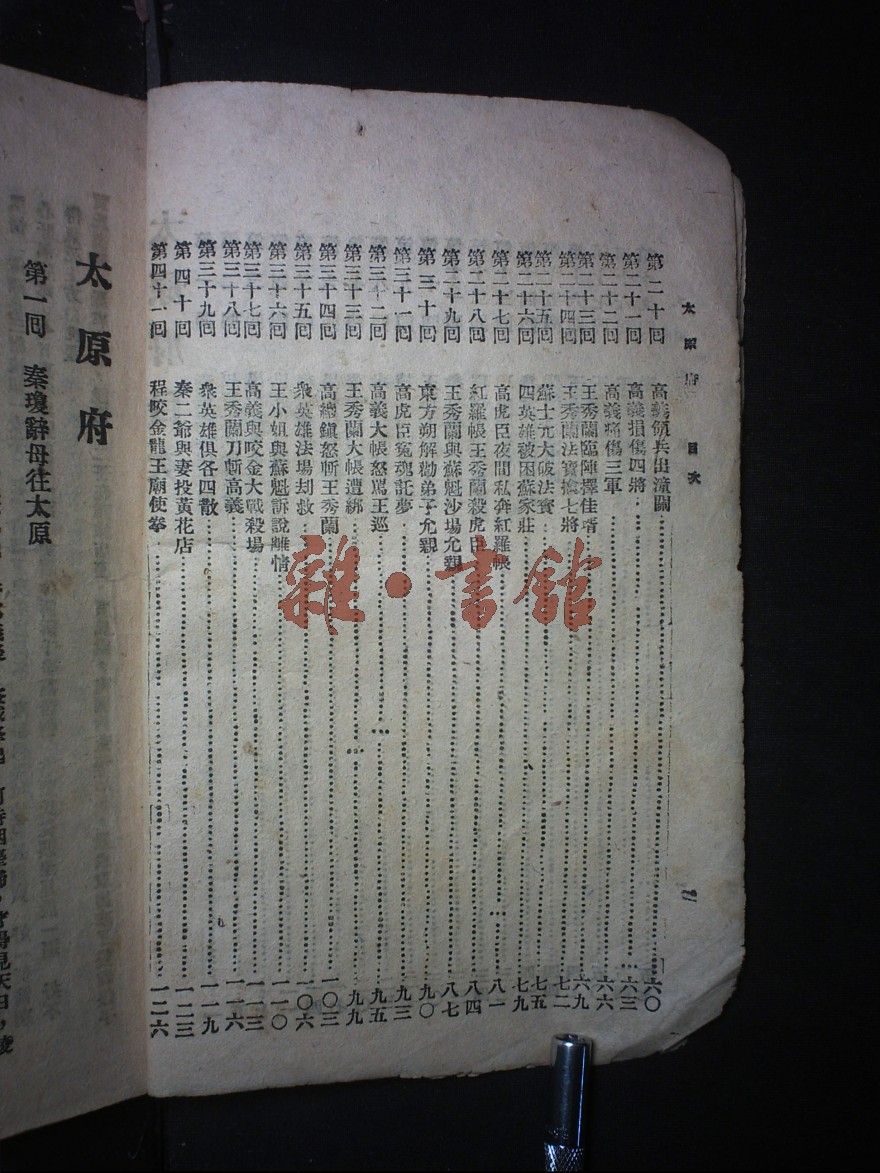 太原府 目次
第二十回 高義領兵出潼關 六〇
第二十一回 高義損傷四將 六三
第二十二回 高義痛傷三軍 六六
第二十三回 王秀蘭臨陣擇佳壻 六九
第二十四回 王秀蘭法寶擒七將 七二
第二十五回 蘇士元大破法寶 七五
第二十六回 四英雄被困蘇家莊 七九
第二十七回 高虎臣夜間私奔紅羅帳 八一
第二十八回 紅羅帳王秀蘭殺虎臣 八四
第二十九回 王秀蘭與蘇魁沙場允親 八七
第三十回 東方朔解勸弟子允親 九〇
第三十一回 高虎臣冤魂託夢 九三
第三十二回 高義大帳怒罵王巡 九五
第三十三回 王秀蘭大帳遭綁 九九
第三十四回 高總鎮怒斬王秀蘭 一〇三
第三十五回 衆英雄法場刦救 一〇六
第三十六回 王小姐與蘇魁訴說離情 一一〇
第三十七回 高義與咬金大戰殺場 一一三
第三十八回 王秀蘭刀斬高義 一一六
第三十九回 衆英雄俱各四散 一一九
第四十回 秦二爺與妻投黃花店 一二三
第四十一回 程咬金龍王廟使拳 一二六
太原府
第一回 秦瓊辭母往太原
雜·書館